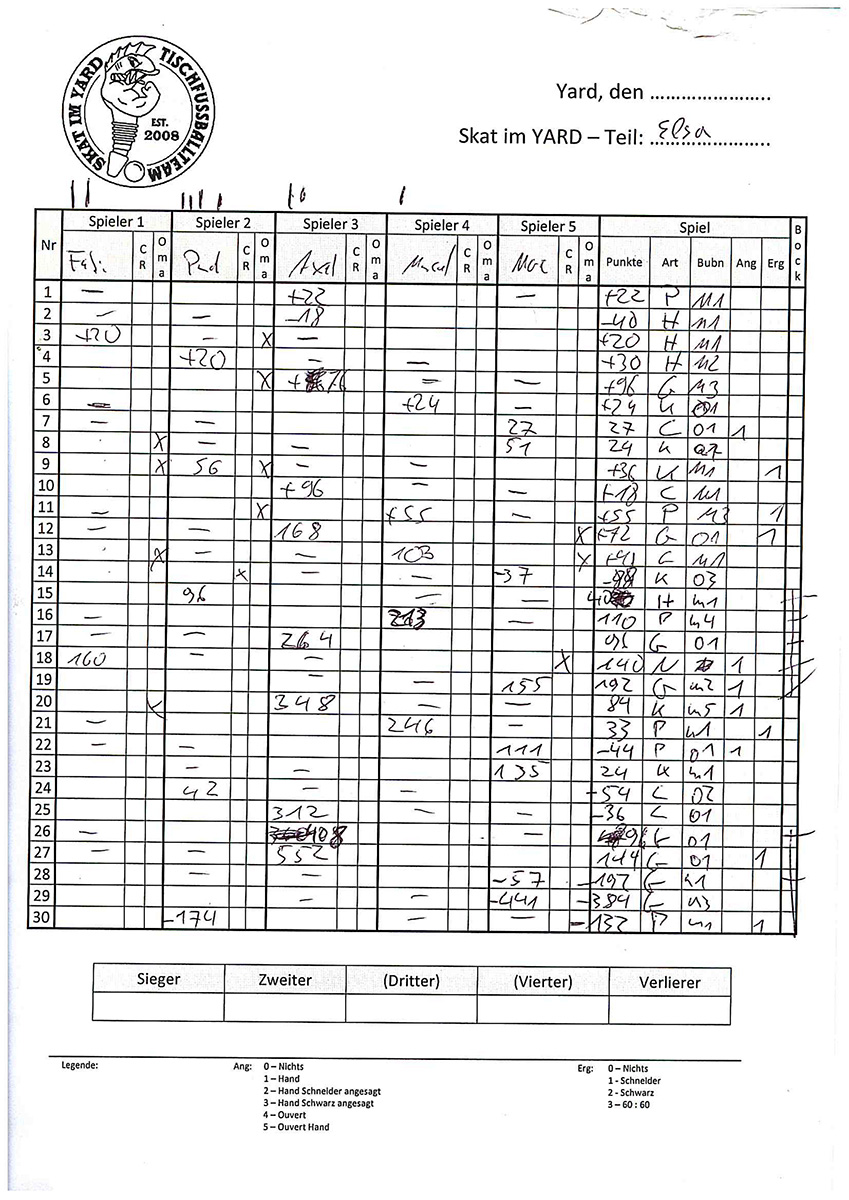 SKAT IM YARD TISCHFUSSBALLTEAM
EST.
2008
Yard, den ........................
Skat im YARD – Teil: Elsa
Spieler 1 Spieler 2 Spieler 3 Spieler 4 Spieler 5 Spiel Bock
Nr CR Oma CR Oma Axel CR Oma CR Oma CR Oma Punkte Art Bubn Ang Erg
1 — +22 — +22 P M1
2 — — -18 -40 H M1
3 +20 — X — +20 H M1
4 +20 — — +30 H M2
5 X — — +96 G M3
6 — +24 — +24 K
7 — — 27 27 C 01 1
8 X — — 51 24 K
9 X 56 X — — +36 K M1 1
10 +96 — — +18 C M1
11 — X +55 — +55 P M3 1
12 — — 168 X +72 G 01 1
13 X — — 103 X G M1
14 X — — -37 K 03
15 96 — — H M1
16 — — 110 P M4
17 — — 264 96 G 01
18 160 — X 140 N 1
19 — — 155 192 G M2 1
20 X 348 — — 84 K M5 1
21 — 246 — 33 P M1 1
22 — — 111 -44 P 01 1
23 — — 135 24 K M1
24 42 — — -54 C 02
25 312 — — -36 C 01
26 — 408 — 96 G 01
27 — — 552 144 G 01 1
28 — — -57 -192 G M1
29 — — -441 -384 G M3
30 -174 — — -132 P M1 1
Sieger Zweiter (Dritter) (Vierter) Verlierer
Legende: Ang: 0 – Nichts Erg: 0 – Nichts
1 – Hand 1 - Schneider
2 – Hand Schneider angesagt 2 - Schwarz
3 – Hand Schwarz angesagt 3 – 60 : 60
4 – Ouvert
5 – Ouvert Hand